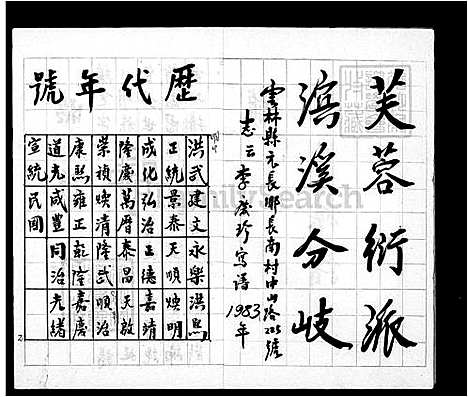 芙蓉衍派
濱溪分岐
雲林縣元長鄉長南村中山路225號
志云 李榮珍寫譜 1983年
歷代年號
洪武 建文 永樂 洪熙
正統 景泰 天順 煥明
成化 弘治 正德 嘉靖
隆慶 萬曆 泰昌 天啟
崇禎 煥清 隆武 順治
康熙 雍正 乾隆 嘉慶
道光 咸豐 同治 光緒
宣統 民國
FamilySearch